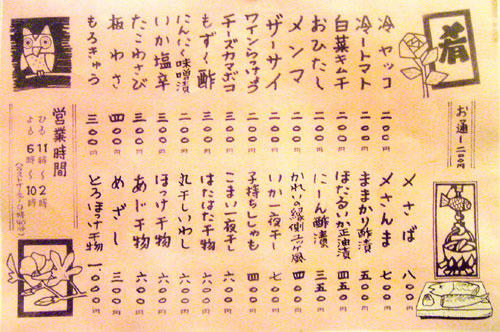 肴
お通し 二〇〇円
冷ヤッコ 二〇〇円
冷トマト 二〇〇円
白菜キムチ 二〇〇円
おひたし 二〇〇円
メンマ 二〇〇円
ザーサイ 二〇〇円
ワインらっきょう 二〇〇円
チーズカマボコ 三〇〇円
もずく酢 三〇〇円
にんにく味噌漬 二〇〇円
いか塩辛 三〇〇円
たこわさび 三〇〇円
板わさ 四〇〇円
もろきゅう 三〇〇円
〆さば 八〇〇円
〆さんま 七〇〇円
ままかり酢漬 五〇〇円
ほたるいか正油漬 四五〇円
にしん酢漬 三五〇円
かれいの縁側 四〇〇円
いか一夜干し 七〇〇円
子持ちししゃも 四〇〇円
こまい一夜干し 六〇〇円
はたはた干物 六〇〇円
丸干しいわし 六〇〇円
ほっけ干物 六〇〇円
あじ干物 六〇〇円
めざし 三〇〇円
とろぼっけ干物 一、〇〇〇円
営業時間
ひる 11時〜2時
よる 5時〜10時